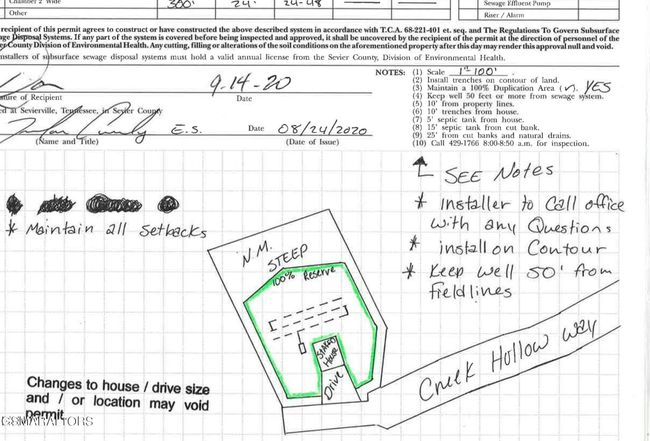 Chamber 2 Wide 300' 24" 24-48
Other
Sewage Effluent Pump
Riser / Alarm
recipient of this permit agrees to construct or have constructed the above described system in accordance with T.C.A. 68-221-401 et. seq. and The Regulations To Govern Subsurface
age Disposal Systems. If any part of the system is covered before being inspected and approved, it shall be uncovered by the recipient of the permit at the direction of personnel of the
er County Division of Environmental Health. Any cutting, filling or alterations of the soil conditions on the aforementioned property after this day may render this approval null and void.
nstallers of subsurface sewage disposal systems must hold a valid annual license from the Sevier County, Division of Environmental Health.
9-14-20
ature of Recipient Date
ed at Sevierville, Tennessee, in Sevier County
E.S. Date 08/24/2020
(Name and Title) (Date of Issue)
NOTES: (1) Scale 1"=100'
(2) Install trenches on contour of land.
(3) Maintain a 100% Duplication Area (✓). YES
(4) Keep well 50 feet or more from sewage system.
(5) 10' from property lines.
(6) 10' trenches from house.
(7) 5' septic tank from house.
(8) 15' septic tank from cut bank.
(9) 25' from cut banks and natural drains.
(10) Call 429-1766 8:00-8:50 a.m. for inspection.
SEE Notes
* Installer to Call office
with any Questions
* install on Contour
* Keep well 50' from
fieldlines
* Maintain all Setbacks
N.M.
STEEP
100% Reserve
House
Drive
Creek Hollow Way
Changes to house / drive size
and / or location may void
permit
GSMARAITORS